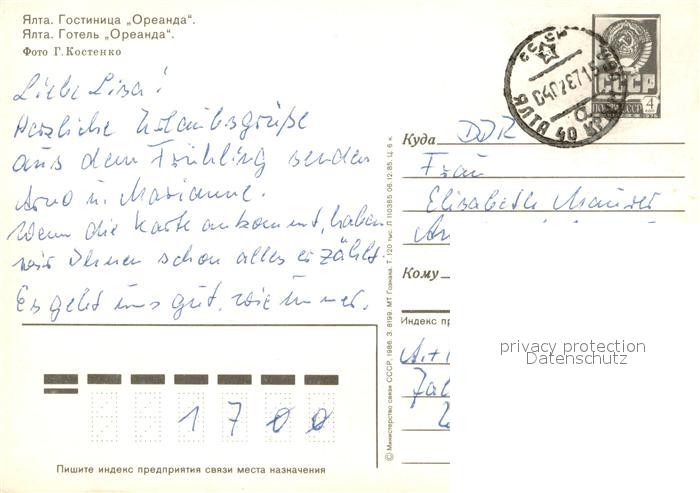 Ялта. Гостиница „Ореанда“.
Ялта. Готель „Ореанда“.
Фото Г. Костенко
Liebe Lisa!
Herzliche Urlaubsgrüße
aus dem Frühling senden
Arno u. Marianne.
Wenn die Karte ankommt, haben
wir Ihnen schon alles erzählt.
Es geht uns gut, wie immer.
1700
Пишите индекс предприятия связи места назначения
© Министерство связи СССР, 1986. З. 8199. МТ Гознака. Т. 120 тыс. Л 110385 06.12.85. Ц. 6 к.
СССР
ПОЧТА СССР
4
ЯЛТА
Куда DDR
Frau
Elisabeth Maurer
Кому
Индекс пр
privacy protection
Datenschutz